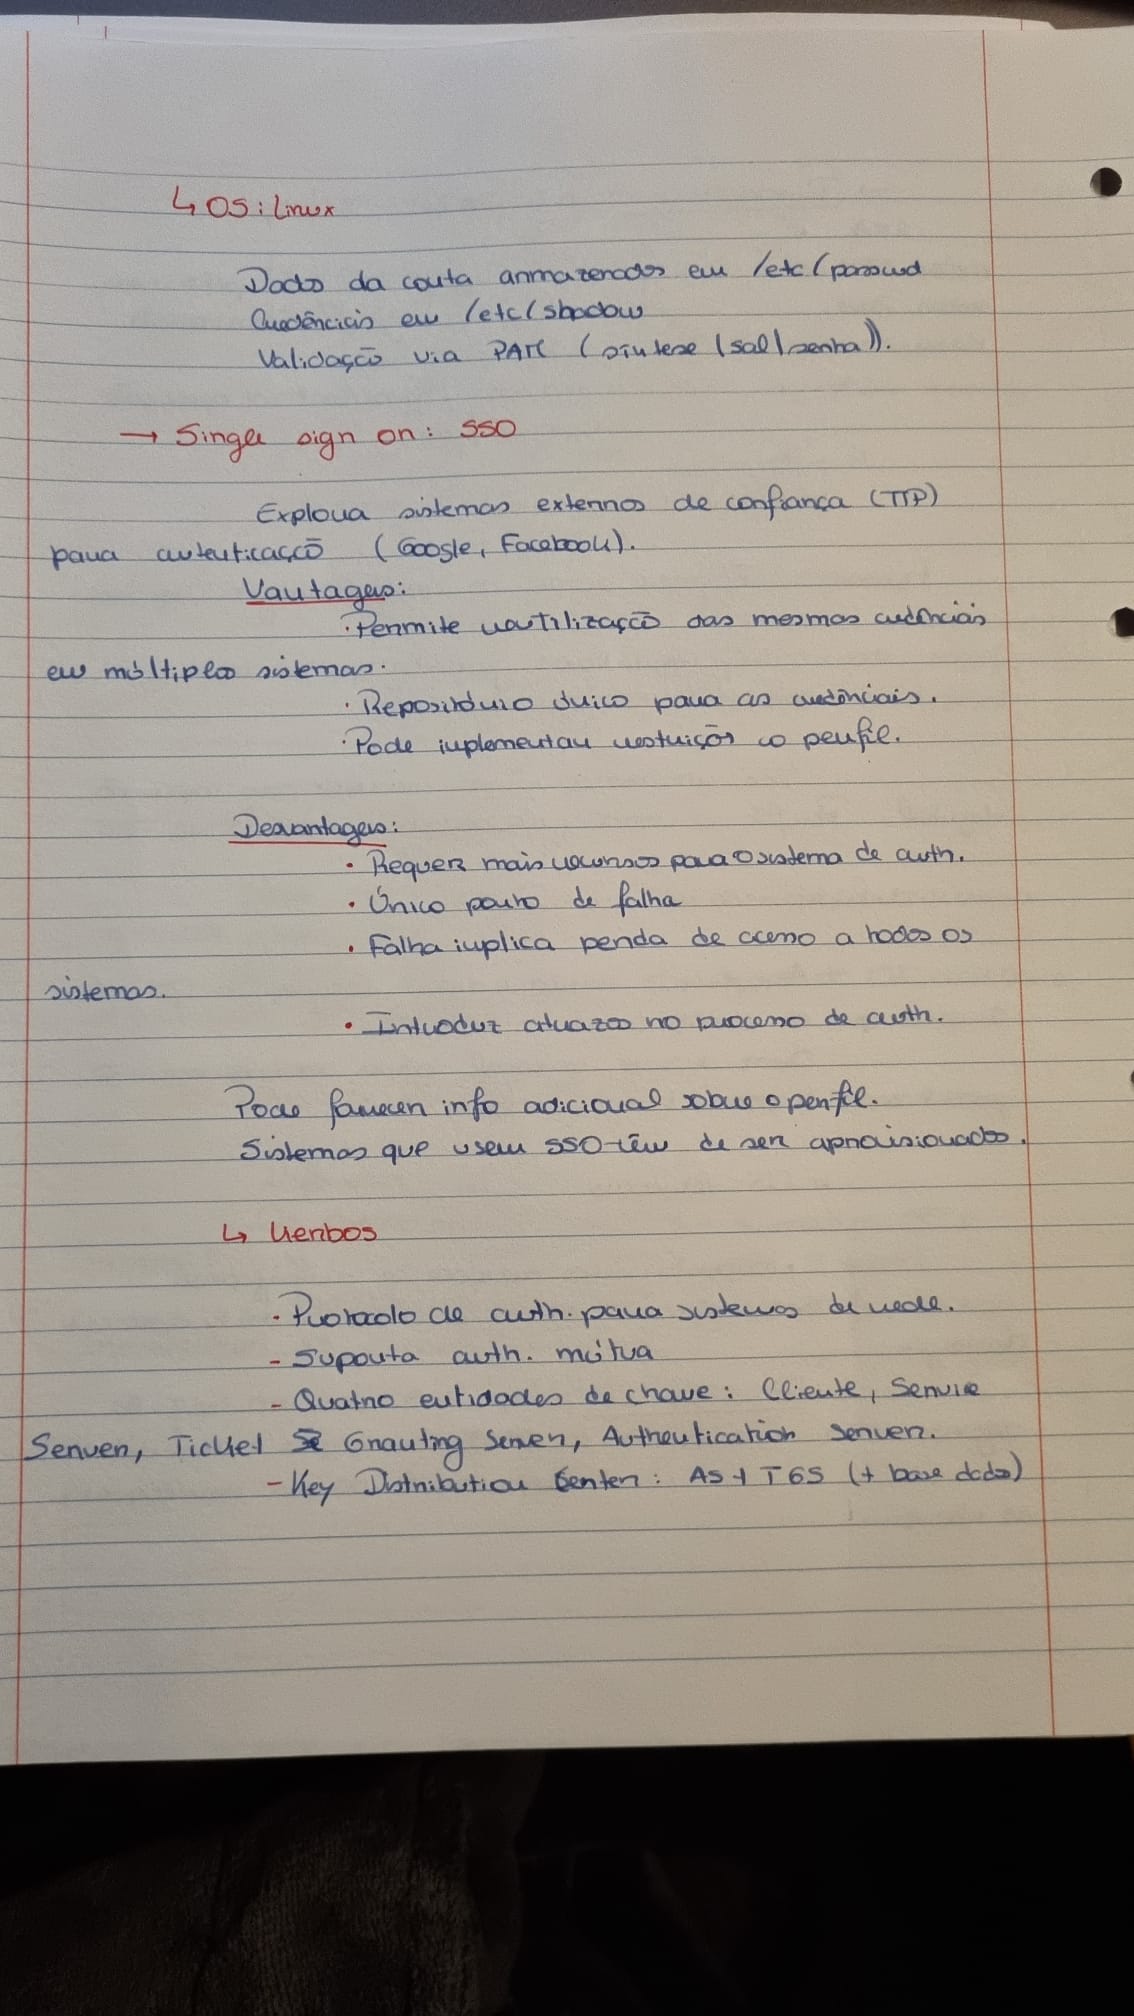 ↳ OS: Linux
Dados da conta armazenados em /etc/passwd
Credênciais em /etc/shadow
Validação via PAM (síntese (sal|senha)).
→ Single sign on: SSO
Explora sistemas externos de confiança (TTP)
para autenticação (Google, Facebook).
Vantagens:
· Permite reutilização das mesmas credênciais
em múltiplos sistemas.
· Repositório único para as credênciais.
· Pode implementar restrições ao perfil.
Desvantagens:
• Requer mais recursos para o sistema de auth.
• Único ponto de falha
• Falha implica perda de acesso a todos os
sistemas.
• Introduz atrazos no processo de auth.
Pode fornecer info adicional sobre o perfil.
Sistemas que usem SSO têm de ser aprovisionados.
↳ Kerbos
· Protocolo de auth. para sistemas de rede.
- Suporta auth. mútua
- Quatro entidades de chave: Cliente, Service
Server, Ticket Granting Server, Authentication server.
- Key Distribution Center: AS + TGS (+ base dados)